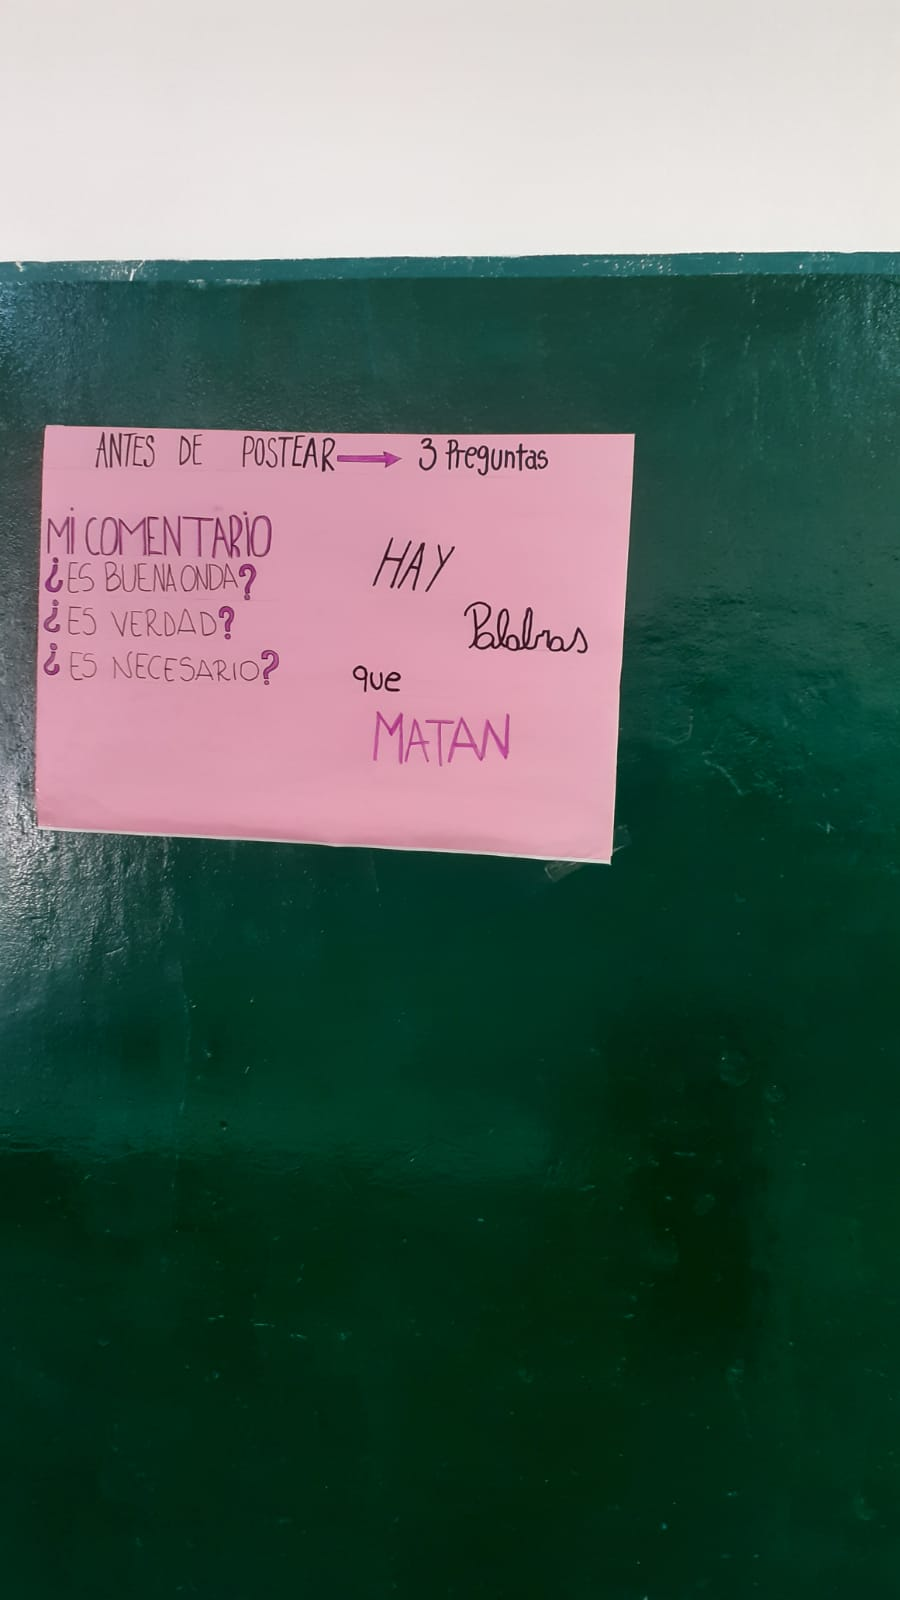 ANTES DE POSTEAR → 3 Preguntas
MI COMENTARIO
¿ES BUENA ONDA?
¿ES VERDAD?
¿ES NECESARIO?
HAY
Palabras
que
MATAN